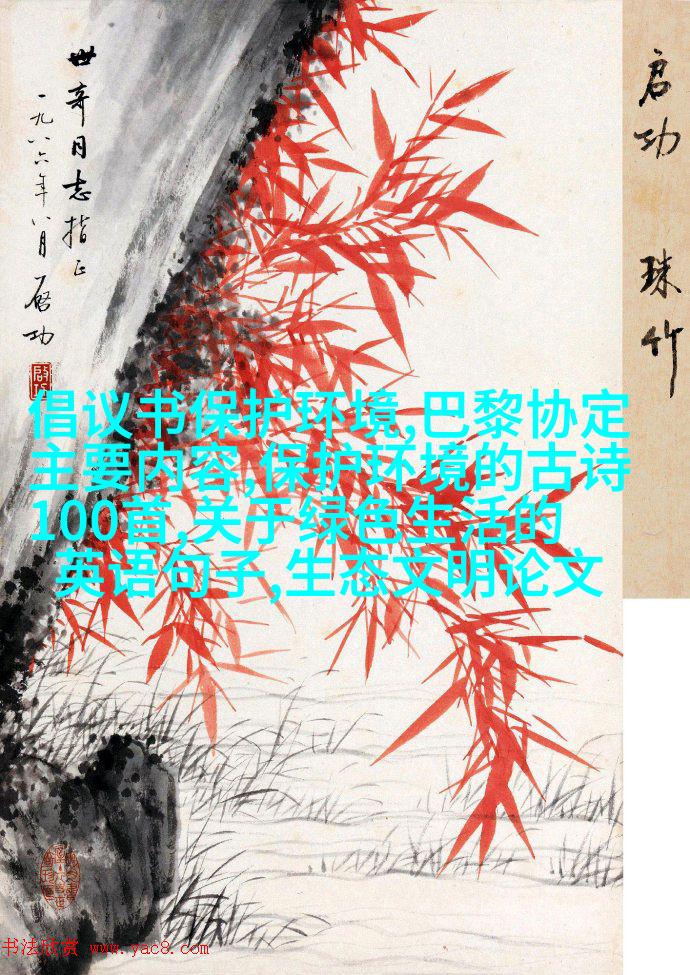 世奇同志指正
一九八六年八月 启功
启功 珠竹
倡议书保护环境,巴黎协定
主要内容,保护环境的古诗
100首,关于绿色生活的
英语句子,生态文明论文
书法欣赏 www.yac8.com